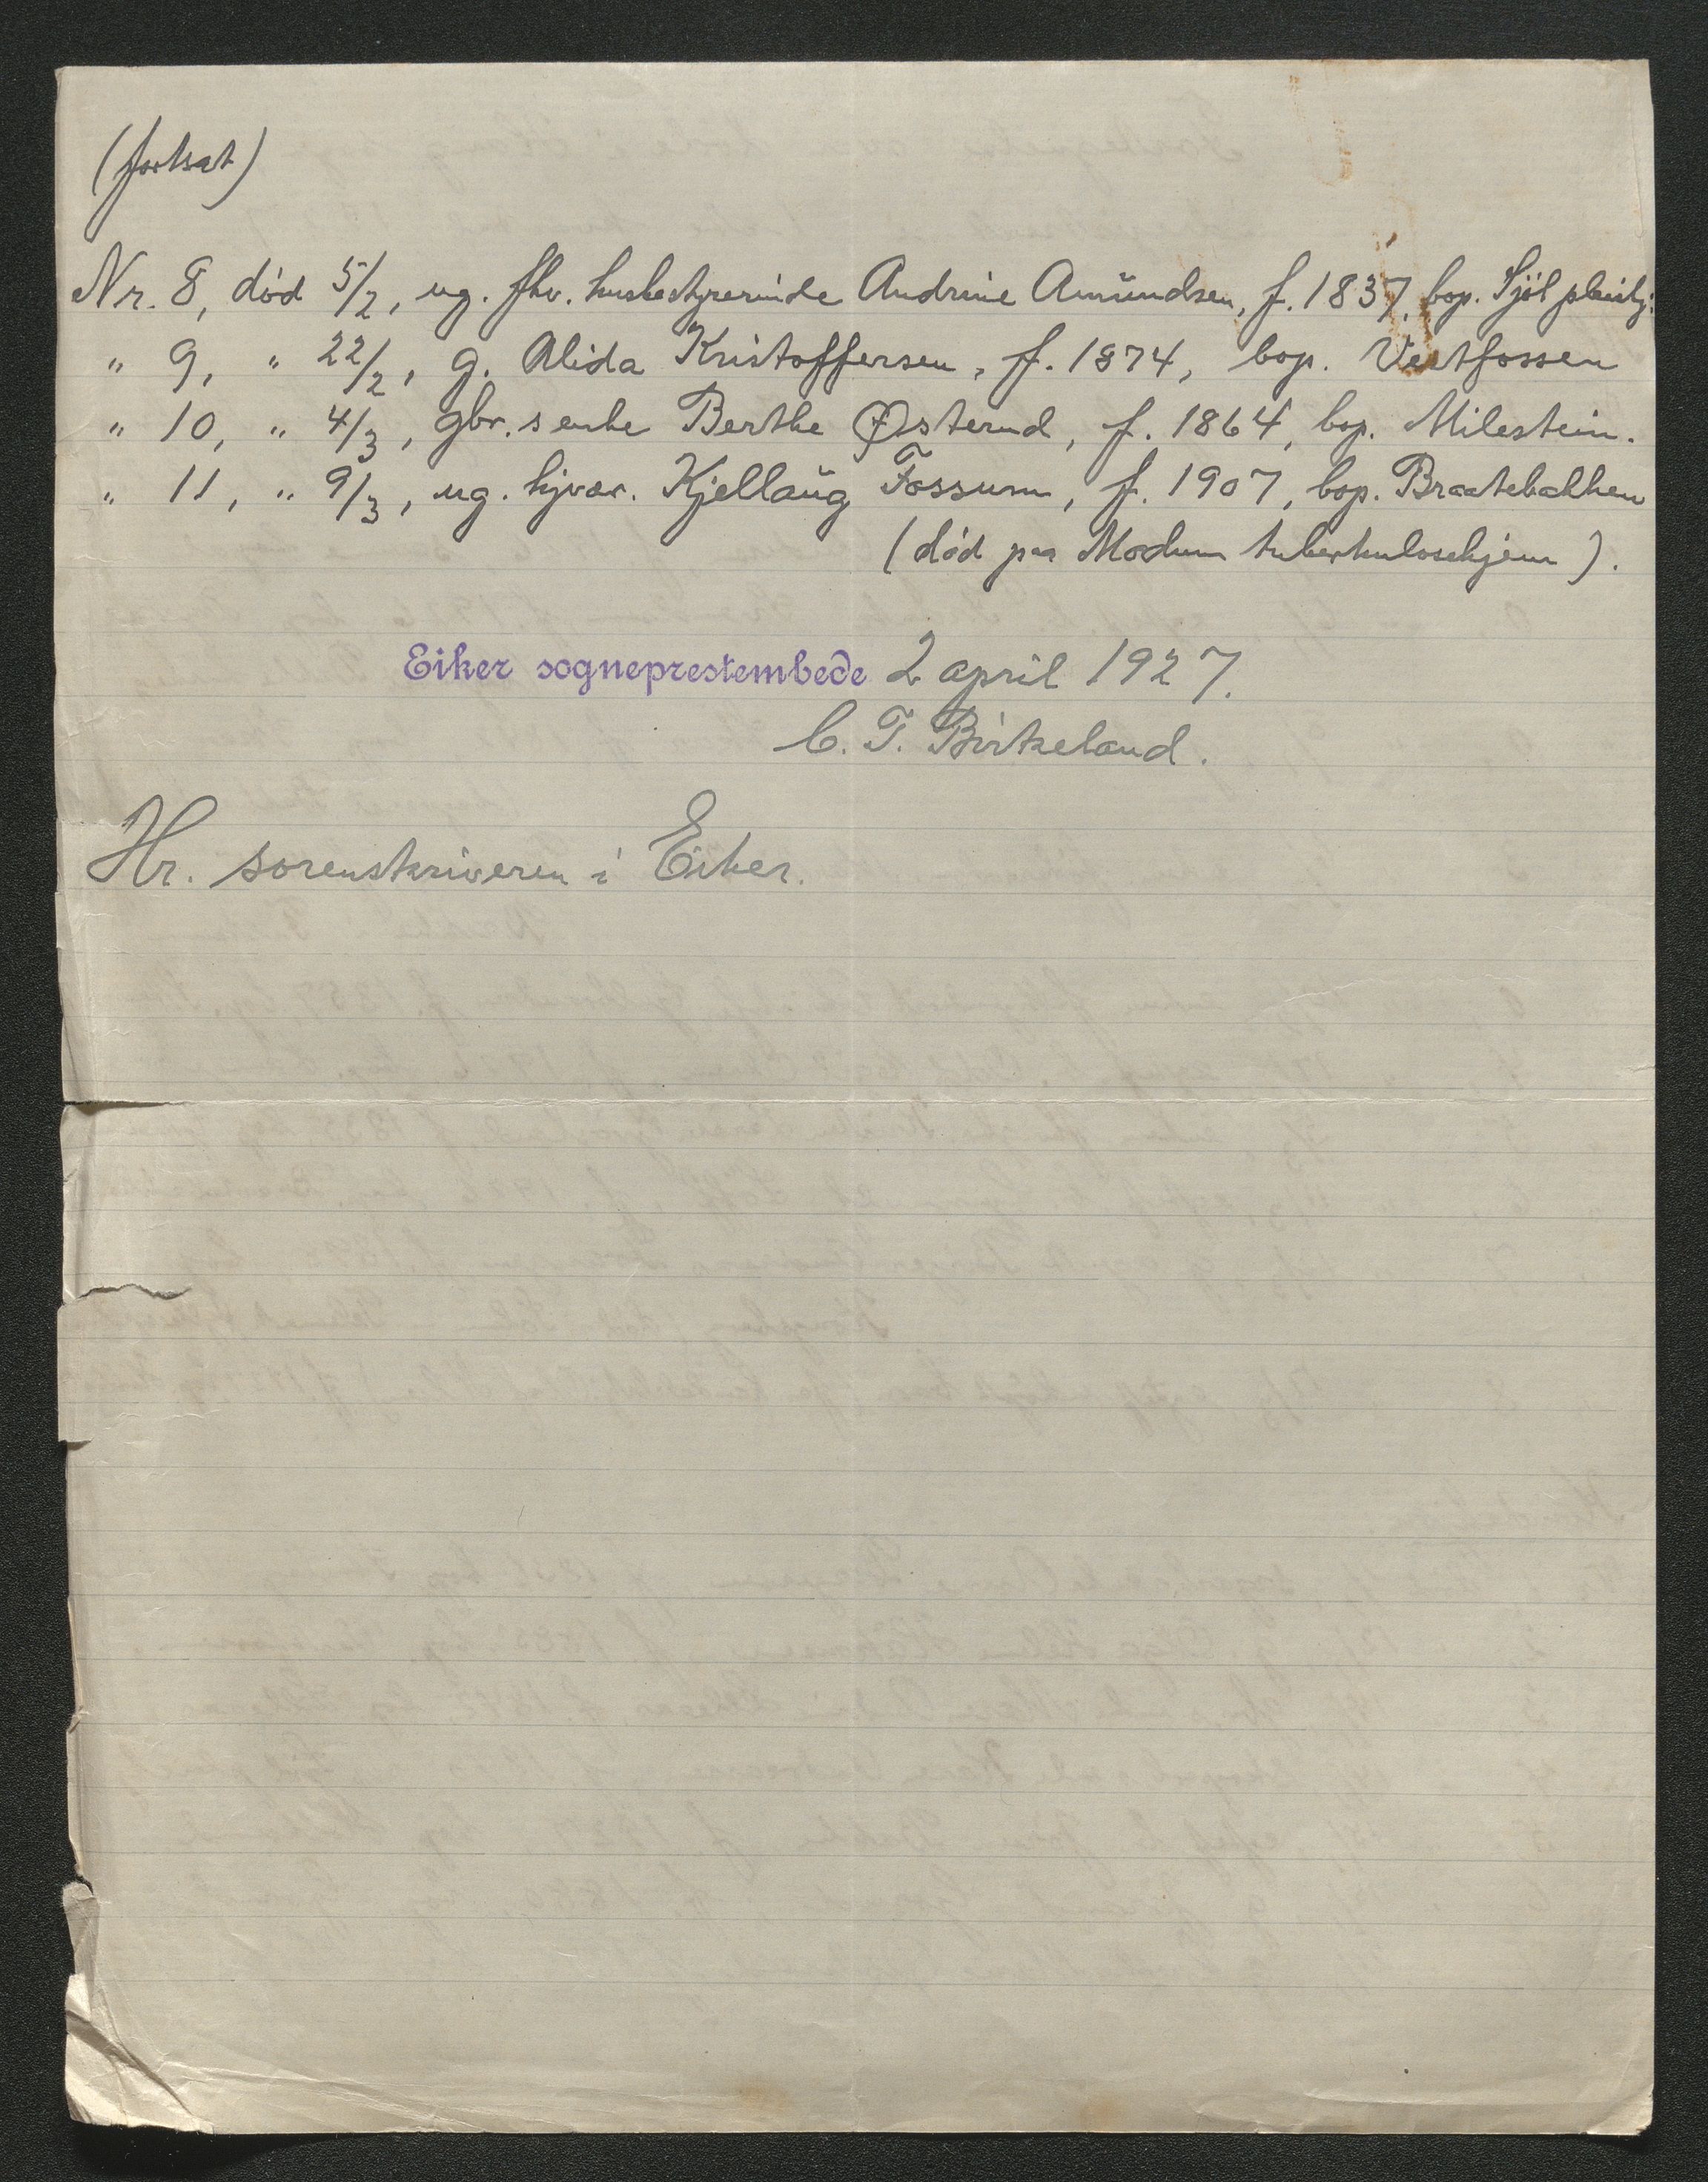 (fortsat)
Nr. 8, død 5/2, ug. fhv. husbestyrerinde Andrine Amundsen, f. 1837, bop. Fjöl pleiehj.
" 9, " 22/2, g. Alida Kristoffersen, f. 1874, bop. Vestfossen
" 10, " 4/3, gbr.s enke Berthe Østerud, f. 1864, bop. Milestein.
" 11, " 9/3, ug. hjvær. Kjellaug Fossum, f. 1907, bop. Braatebakken
(død paa Modum tuberkulosehjem).
Eiker sogneprestembede 2 april 1927.
C. T. Birkeland.
Hr. sorenskriveren i Eiker.